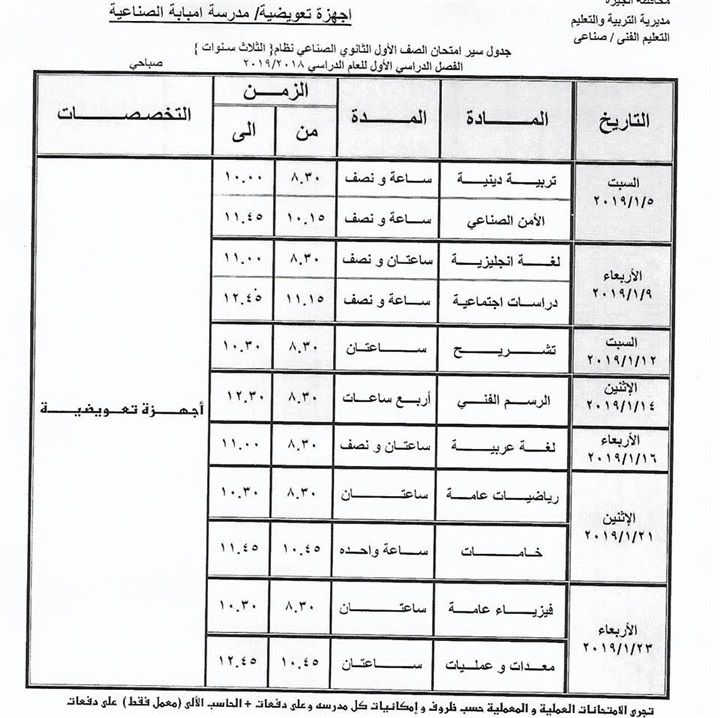 محافظة الجيزة
مديرية التربية والتعليم
التعليم الفنى / صناعى
اجهزة تعويضية/ مدرسة امبابة الصناعية
جدول سير امتحان الصف الأول الثانوي الصناعي نظام{ الثلاث سنوات }
الفصل الدراسي الأول للعام الدراسي ٢٠١٩/٢٠١٨ صباحي
التاريخ المادة المدة الزمن التخصصات
من الى
السبت ٢٠١٩/١/٥ تربية دينية ساعة و نصف ٨.٣٠ ١٠.٠٠
الأمن الصناعي ساعة و نصف ١٠.١٥ ١١.٤٥
الأربعاء ٢٠١٩/١/٩ لغة انجليزية ساعتان و نصف ٨.٣٠ ١١.٠٠
دراسات اجتماعية ساعة و نصف ١١.١٥ ١٢.٤٥
السبت ٢٠١٩/١/١٢ تشريح ساعتان ٨.٣٠ ١٠.٣٠
الإثنين ٢٠١٩/١/١٤ الرسم الفني أربع ساعات ٨.٣٠ ١٢.٣٠ أجهزة تعويضية
الأربعاء ٢٠١٩/١/١٦ لغة عربية ساعتان و نصف ٨.٣٠ ١١.٠٠
الإثنين ٢٠١٩/١/٢١ رياضيات عامة ساعتان ٨.٣٠ ١٠.٣٠
خامات ساعة واحده ١٠.٤٥ ١١.٤٥
الأربعاء ٢٠١٩/١/٢٣ فيزياء عامة ساعتان ٨.٣٠ ١٠.٣٠
معدات و عمليات ساعتان ١٠.٤٥ ١٢.٤٥
تجرى الامتحانات العملية و المعملية حسب ظروف و إمكانيات كل مدرسه وعلى دفعات + الحاسب الآلى (معمل فقط) على دفعات